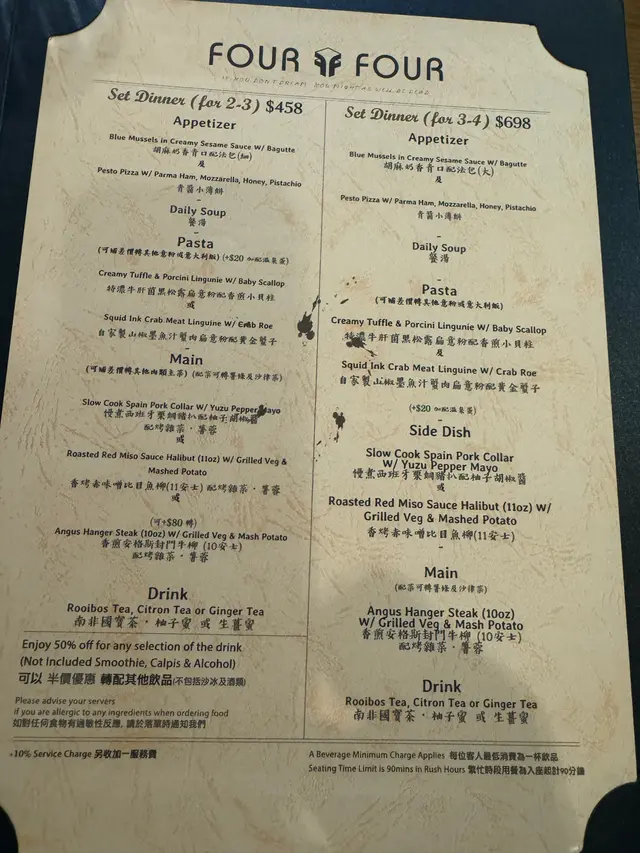 FOUR FOUR
IF YOU DON'T DREAM, YOU MIGHT AS WELL BE DEAD
Set Dinner (for 2-3) $458
Appetizer
Blue Mussels in Creamy Sesame Sauce W/ Bagutte
胡麻奶香青口配法包(細)
及
Pesto Pizza W/ Parma Ham, Mozzarella, Honey, Pistachio
青醬小薄餅
–
Daily Soup
餐湯
–
Pasta
(可補差價轉其他意粉或意大利飯) (+$20 加配溫泉蛋)
Creamy Tuffle & Porcini Lingunie W/ Baby Scallop
特濃牛肝菌黑松露扁意粉配香煎小貝柱
或
Squid Ink Crab Meat Linguine W/ Crab Roe
自家製山椒墨魚汁蟹肉扁意粉配黃金蟹子
–
Main
(可補差價轉其他肉類主菜) (配菜可轉薯條及沙律菜)
Slow Cook Spain Pork Collar W/ Yuzu Pepper Mayo
慢煮西班牙栗飼豬扒配柚子胡椒醬
配烤雜菜・薯蓉
或
Roasted Red Miso Sauce Halibut (11oz) W/ Grilled Veg &
Mashed Potato
香烤赤味噌比目魚柳(11安士) 配烤雜菜・薯蓉
或
(可+$80 轉)
Angus Hanger Steak (10oz) W/ Grilled Veg & Mash Potato
香煎安格斯封門牛柳 (10安士)
配烤雜菜・薯蓉
Drink
Rooibos Tea, Citron Tea or Ginger Tea
南非國寶茶・柚子蜜 或 生薑蜜
Enjoy 50% off for any selection of the drink
(Not Included Smoothie, Calpis & Alcohol)
可以 半價優惠 轉配其他飲品(不包括沙冰及酒類)
Please advise your servers
if you are allergic to any ingredients when ordering food
如對任何食物有過敏性反應, 請於落單時通知我們
Set Dinner (for 3-4) $698
Appetizer
Blue Mussels in Creamy Sesame Sauce W/ Bagutte
胡麻奶香青口配法包(大)
及
Pesto Pizza W/ Parma Ham, Mozzarella, Honey, Pistachio
青醬小薄餅
–
Daily Soup
餐湯
–
Pasta
(可補差價轉其他意粉或意大利飯)
Creamy Tuffle & Porcini Lingunie W/ Baby Scallop
特濃牛肝菌黑松露扁意粉配香煎小貝柱
及
Squid Ink Crab Meat Linguine W/ Crab Roe
自家製山椒墨魚汁蟹肉扁意粉配黃金蟹子
(+$20 加配溫泉蛋)
Side Dish
Slow Cook Spain Pork Collar
W/ Yuzu Pepper Mayo
慢煮西班牙栗飼豬扒配柚子胡椒醬
或
Roasted Red Miso Sauce Halibut (11oz) W/
Grilled Veg & Mashed Potato
香烤赤味噌比目魚柳(11安士)
–
Main
(配菜可轉薯條及沙律菜)
Angus Hanger Steak (10oz)
W/ Grilled Veg & Mash Potato
香煎安格斯封門牛柳 (10安士)
配烤雜菜・薯蓉
–
Drink
Rooibos Tea, Citron Tea or Ginger Tea
南非國寶茶・柚子蜜 或 生薑蜜
+10% Service Charge 另收加一服務費
A Beverage Minimum Charge Applies 每位客人最低消費為一杯飲品
Seating Time Limit is 90mins in Rush Hours 繁忙時段用餐為入座起計90分鐘